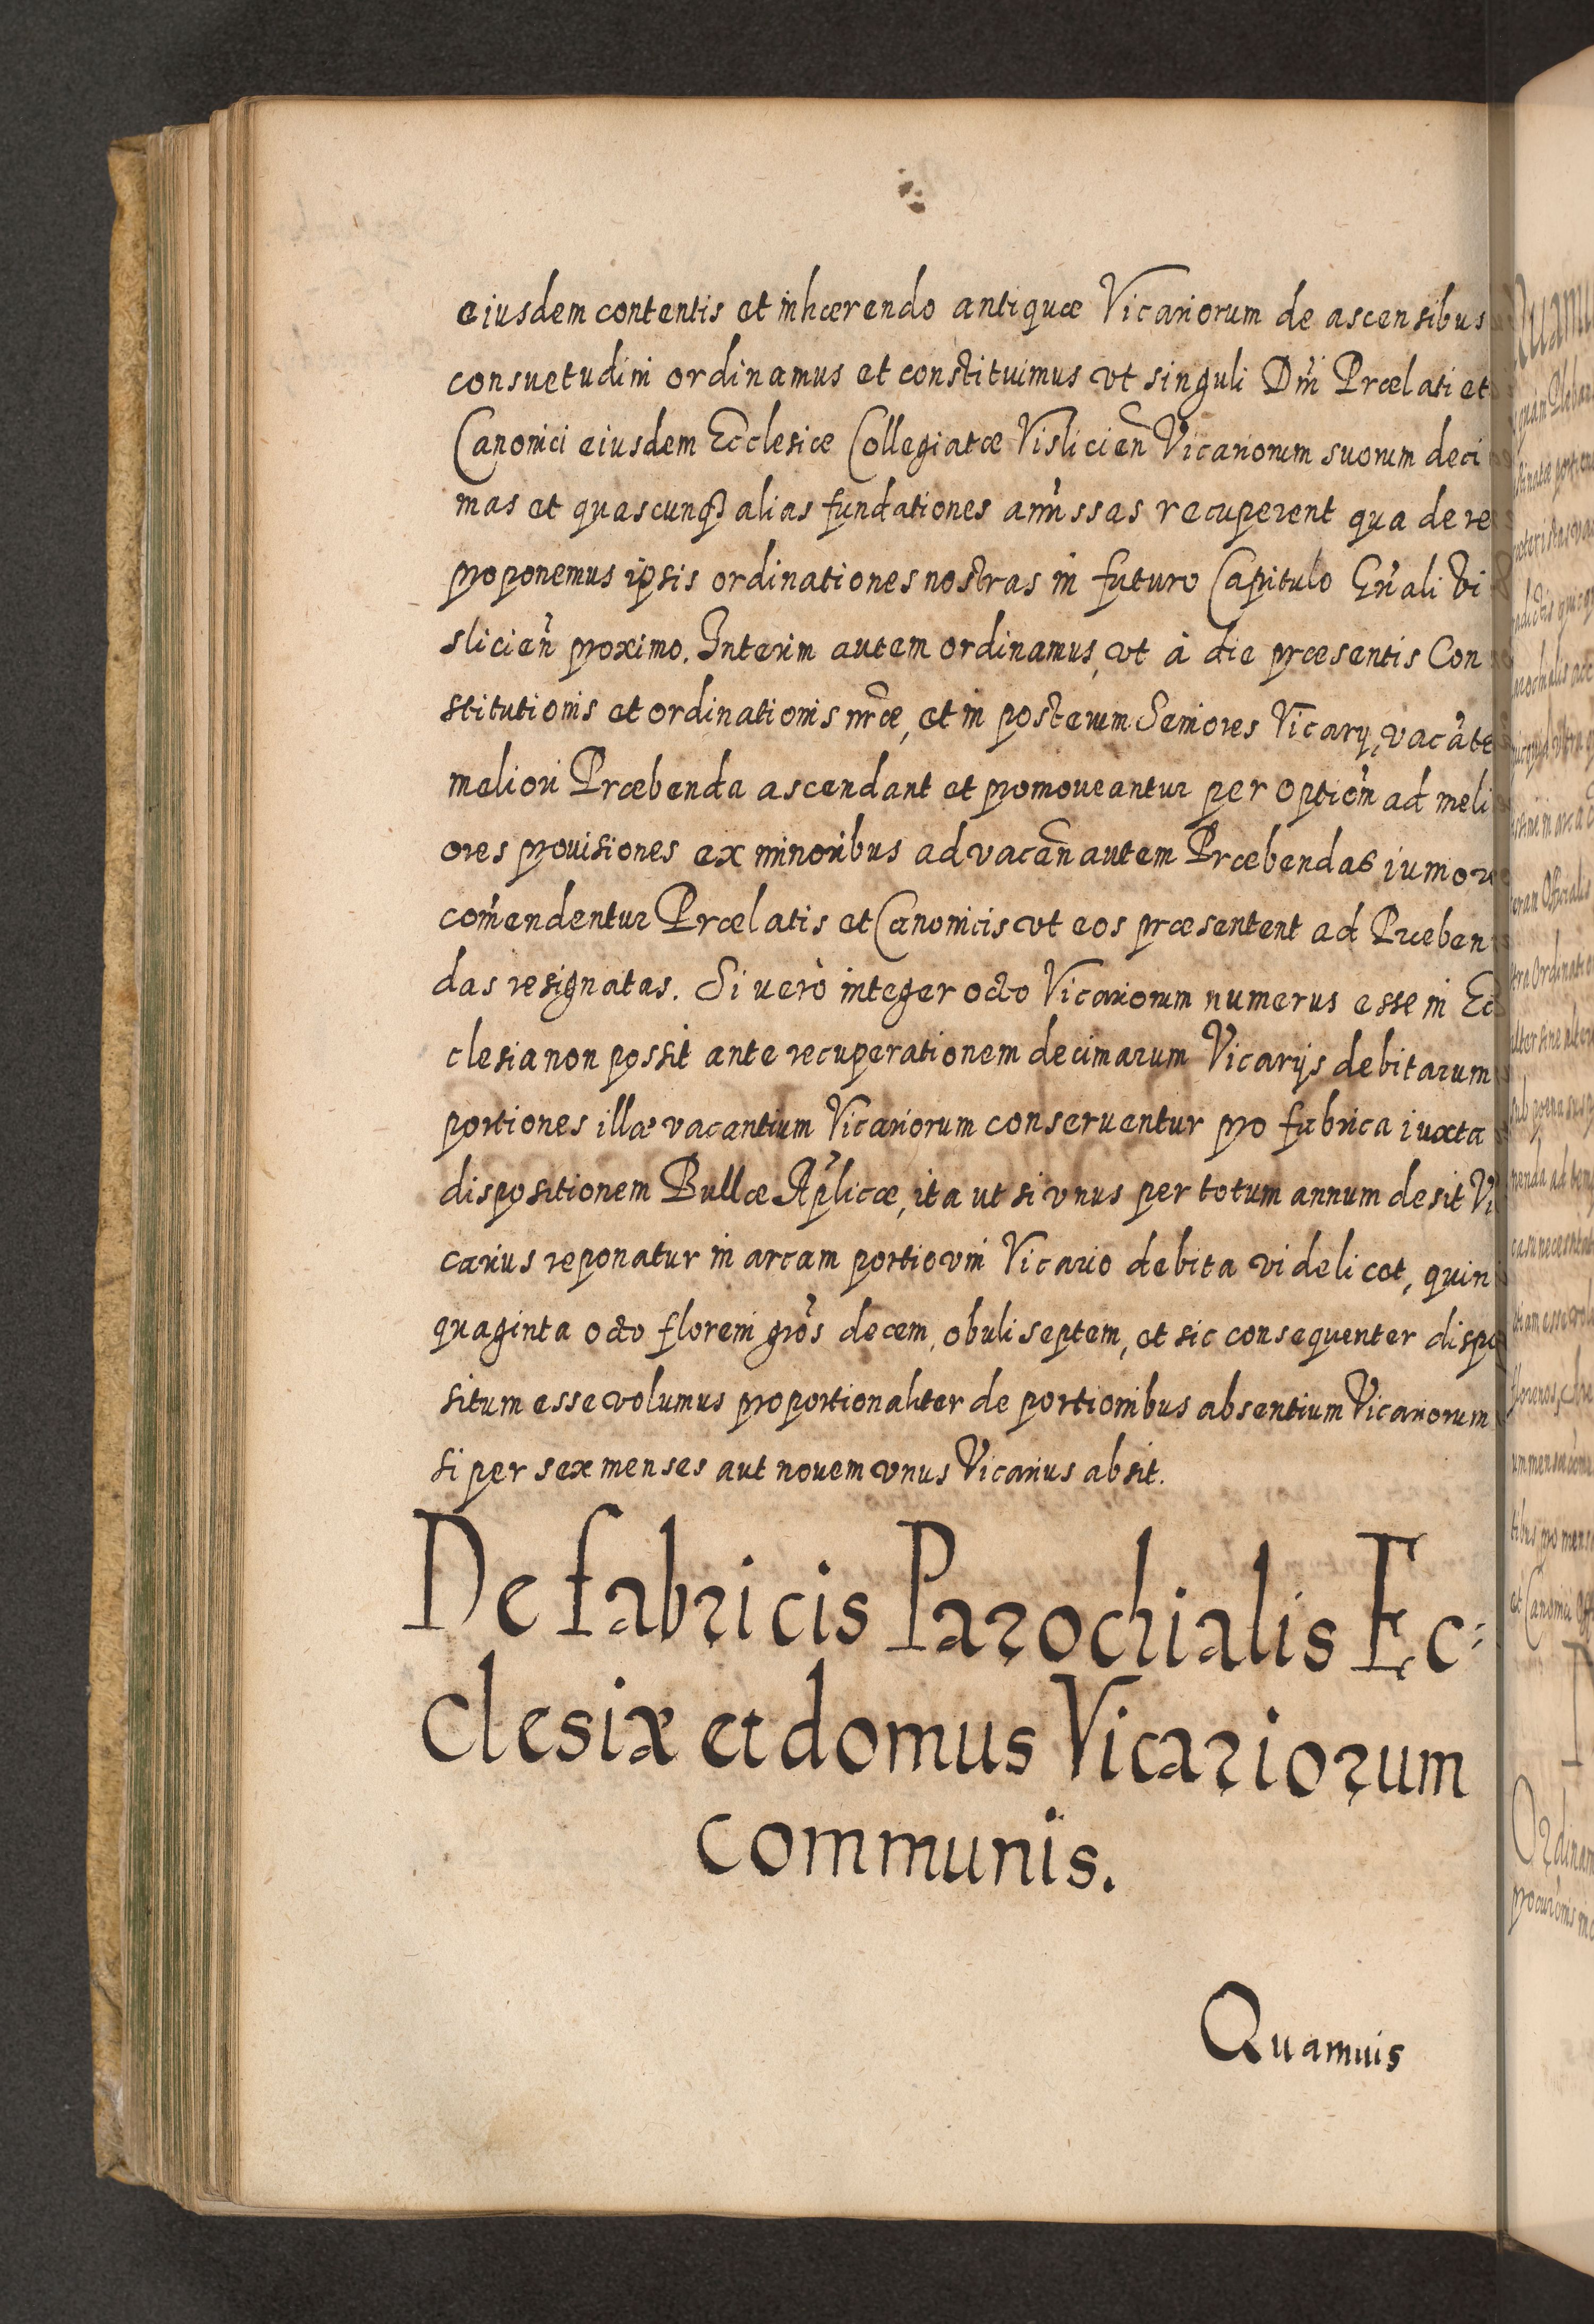 eiusdem contentis et inhærendo antiquæ Vicariorum de ascensibus
consuetudini ordinamus et constituimus vt singuli Dñi Prælati et
Canonici eiusdem Ecclesiæ Collegiatæ Vislicieñ Vicariorum suorum deci
mas et quascunq3 alias fundationes amissas recuperent qua de re
proponemus ipsis ordinationes nostras in futuro Capitulo Gñali Vi
slicieñ proximo. Interim autem ordinamus, vt à die præsentis Con
stitutionis et ordinationis nr̃æ, et in posterum Seniores Vicarij, vacãte
meliori Præbenda ascendant et promoueantur per optioñ ad meli
ores prouisiones ex minoribus ad vacañ autem Præbendas iuniores
com̃endentur Prælatis et Canonicis vt eos præsentent ad Præben
das resignatas. Si verò integer octo Vicariorum numerus esse in Ec
clesia non possit ante recuperationem decimarum Vicarijs debitarum
portiones illæ vacantium Vicariorum conseruentur pro fabrica iuxta
dispositionem Bullæ Ap̃licæ, ita ut si vnus per totum annum desit Vi
carius reponatur in arcam portio vni Vicario debita videlicet, quin
quaginta octo floreni grõs decem, obuli septem, et sic consequenter dispo
situm esse volumus proportionaliter de portionibus absentium Vicariorum
si per sex menses aut nouem vnus Vicarius absit.
De fabricis Parochialis Ec=
clesiæ et domus Vicariorum
communis.
Quamuis